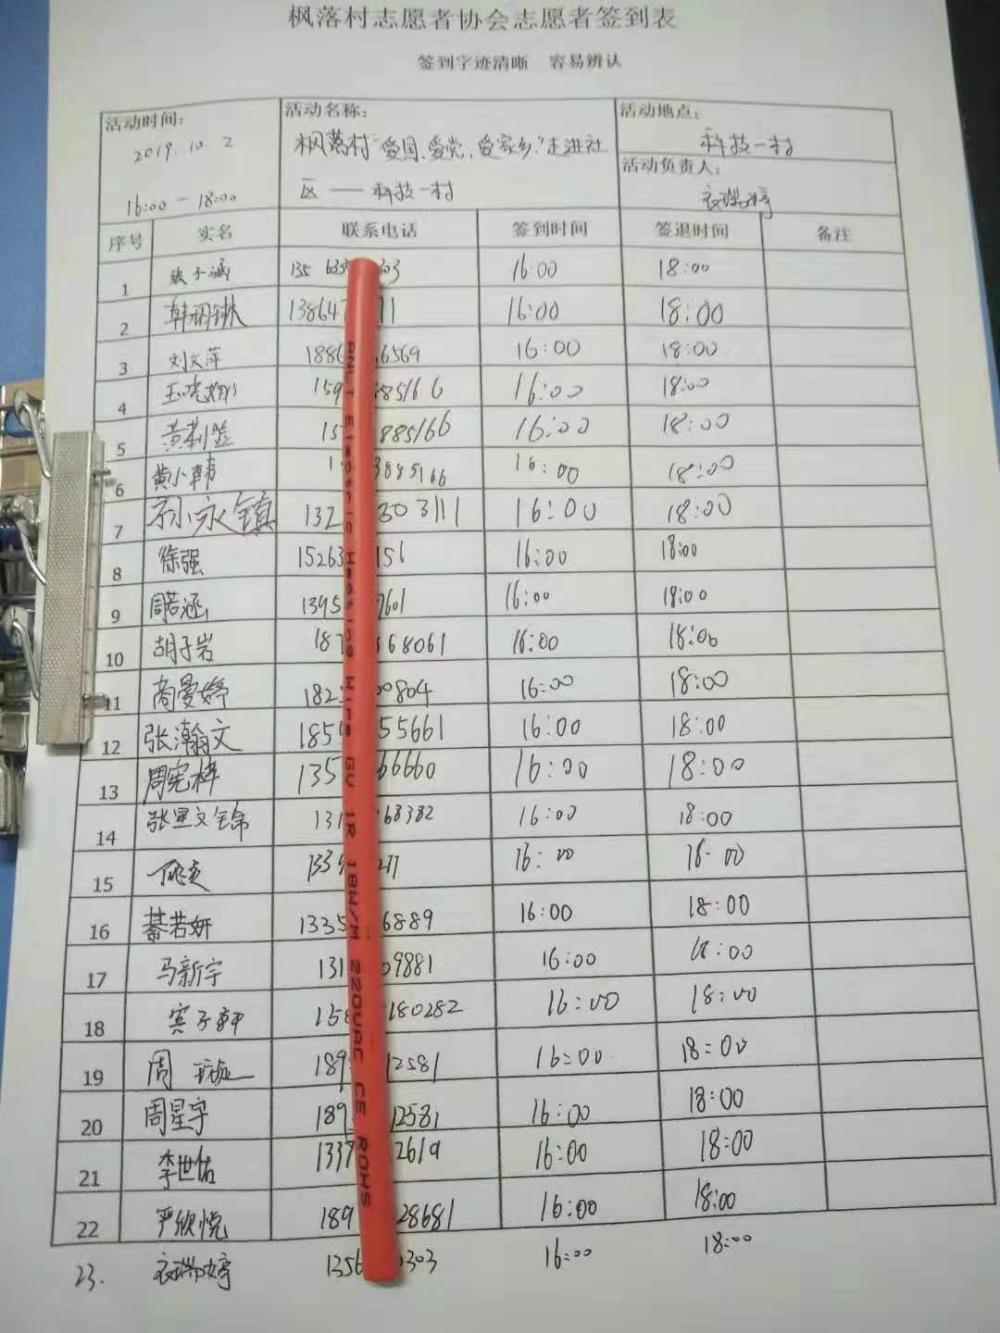 枫落村志愿者协会志愿者签到表
签到字迹清晰 容易辨认
活动时间: 活动名称: 活动地点:
2019.10.2 枫落村"爱国、爱党、爱家乡."走进社 科技一村
活动负责人:
16:00 - 18:00 区 —— 科技一村 衣瑞婷
序号 实名 联系电话 签到时间 签退时间 备注
1 16:00 18:00
2 13864 11 16:00 18:00
3 刘文萍 188 6569 16:00 18:00
4 159 885166 16:00 18:00
5 15 885166 16:00 18:00
6 黄小韩 1 3885166 16:00 18:00
7 孙永镇 132 303111 16:00 18:00
8 徐强 15263 156 16:00 18:00
9 周若涵 1395 7601 16:00 18:00
10 胡子岩 187 68061 16:00 18:00
11 商曼婷 182 00804 16:00 18:00
12 张瀚文 185 55661 16:00 18:00
13 周宪梓 135 66660 16:00 18:00
14 131 68382 16:00 18:00
15 1339 211 16:00 18:00
16 綦若妍 1335 6889 16:00 18:00
17 马新宇 131 09881 16:00 18:00
18 158 180282 16:00 18:00
19 周 189 12581 16:00 18:00
20 周星宇 189 12581 16:00 18:00
21 李世佑 1337 2619 16:00 18:00
22 严欣悦 189 28681 16:00 18:00
23. 衣瑞婷 1356 0303 16:00 18:00
220VAC CE ROHS